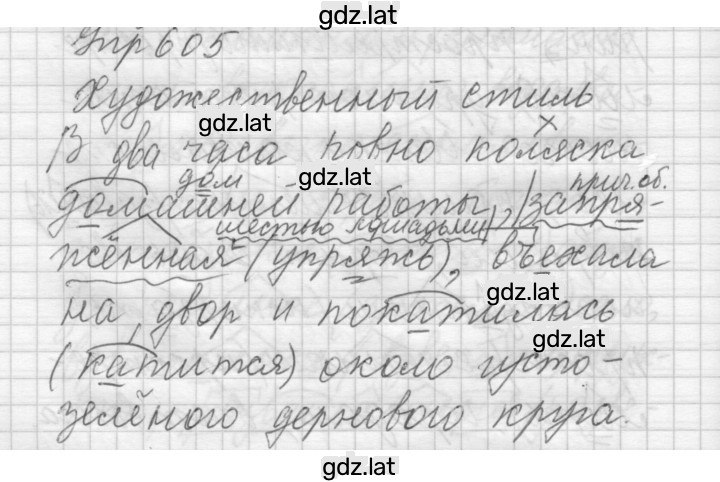 gdz.lat
Упр 605
Художественный стиль
gdz.lat
В два часа ровно коляска
дом gdz.lat прич. об.
домашней работы, запря-
шестью лошадьми
жённая (упряжь), въехала
gdz.lat
на двор и покатилась
gdz.lat
(катится) около густо-
зелёного дернового круга.
gdz.lat